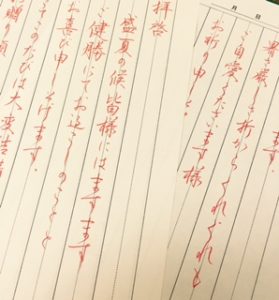 拝啓
盛夏の候皆様にはますます
ご健勝にてお過しのことと
お喜び申し上げます。
このたびは大変結構
お贈り頂
月 日
暑さ厳しき折からくれぐれも
ご自愛くださいます様
お祈り申し上